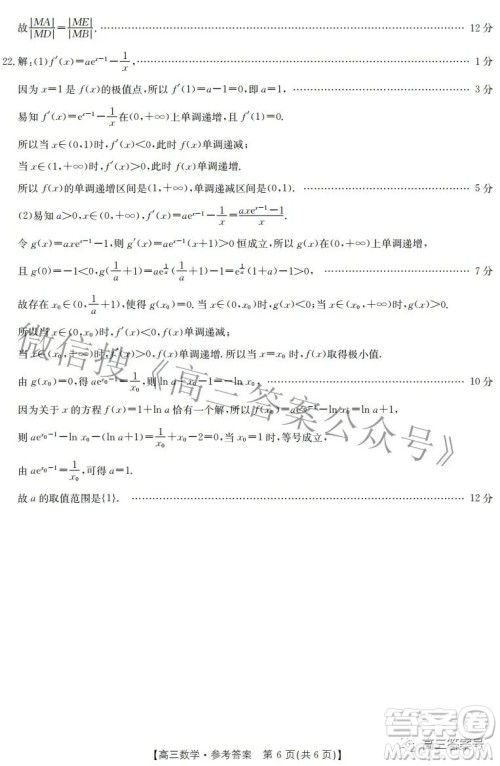 故|MA|/|MD|=|ME|/|MB|. 12分
22.解:(1)f′(x)=ae^{x-1}-1/x, 1分
因为x=1是f(x)的极值点,所以f′(1)=a-1=0,即a=1, 3分
易知f′(x)=e^{x-1}-1/x在(0,+∞)上单调递增,
所以当x∈(0,1)时,f′(x)<0,此时f(x)单调递减;
当x∈(1,+∞)时,f′(x)>0,此时f(x)单调递增.
所以f(x)的单调递增区间是(1,+∞),单调递减区间是(0,1). 5分
(2)易知a>0,f′(x)=ae^{x-1}-1/x=(axe^{x-1}-1)/x.
令g(x)=axe^{x-1}-1,则g′(x)=ae^{x-1}(x+1)>0恒成立,所以g(x)在(0,+∞)上单调递增,
且g(0)=-1<0,g(1/a+1)=ae^{1/a}(1/a+1)-1=e^{1/a}(1+a)-1>0, 7分
故存在x₀∈(0,1/a+1),使得g(x₀)=0.当x∈(0,x₀)时,g(x)<0;当x∈(x₀,+∞)时,g(x)>0.
所以当x∈(0,x₀)时,f′(x)<0,f(x)单调递减;
当x∈(x₀,+∞)时,f′(x)>0,f(x)单调递增,所以当x=x₀时,f(x)取得极小值.
由g(x₀)=0,得ae^{x₀-1}=1/x₀,则ln a+x₀-1=-ln x₀, 10分
因为关于x的方程f(x)=1+ln a恰有一个解,
则ae^{x₀-1}-ln x₀-(ln a+1)=1/x₀+x₀-2=0,当且仅当x₀=1时,等号成立,
由ae^{x₀-1}=1/x₀,可得a=1.
故a的取值范围是{1}. 12分
微信搜《高三答案公众号》
【高三数学·参考答案 第6页(共6页)】
高三答案号